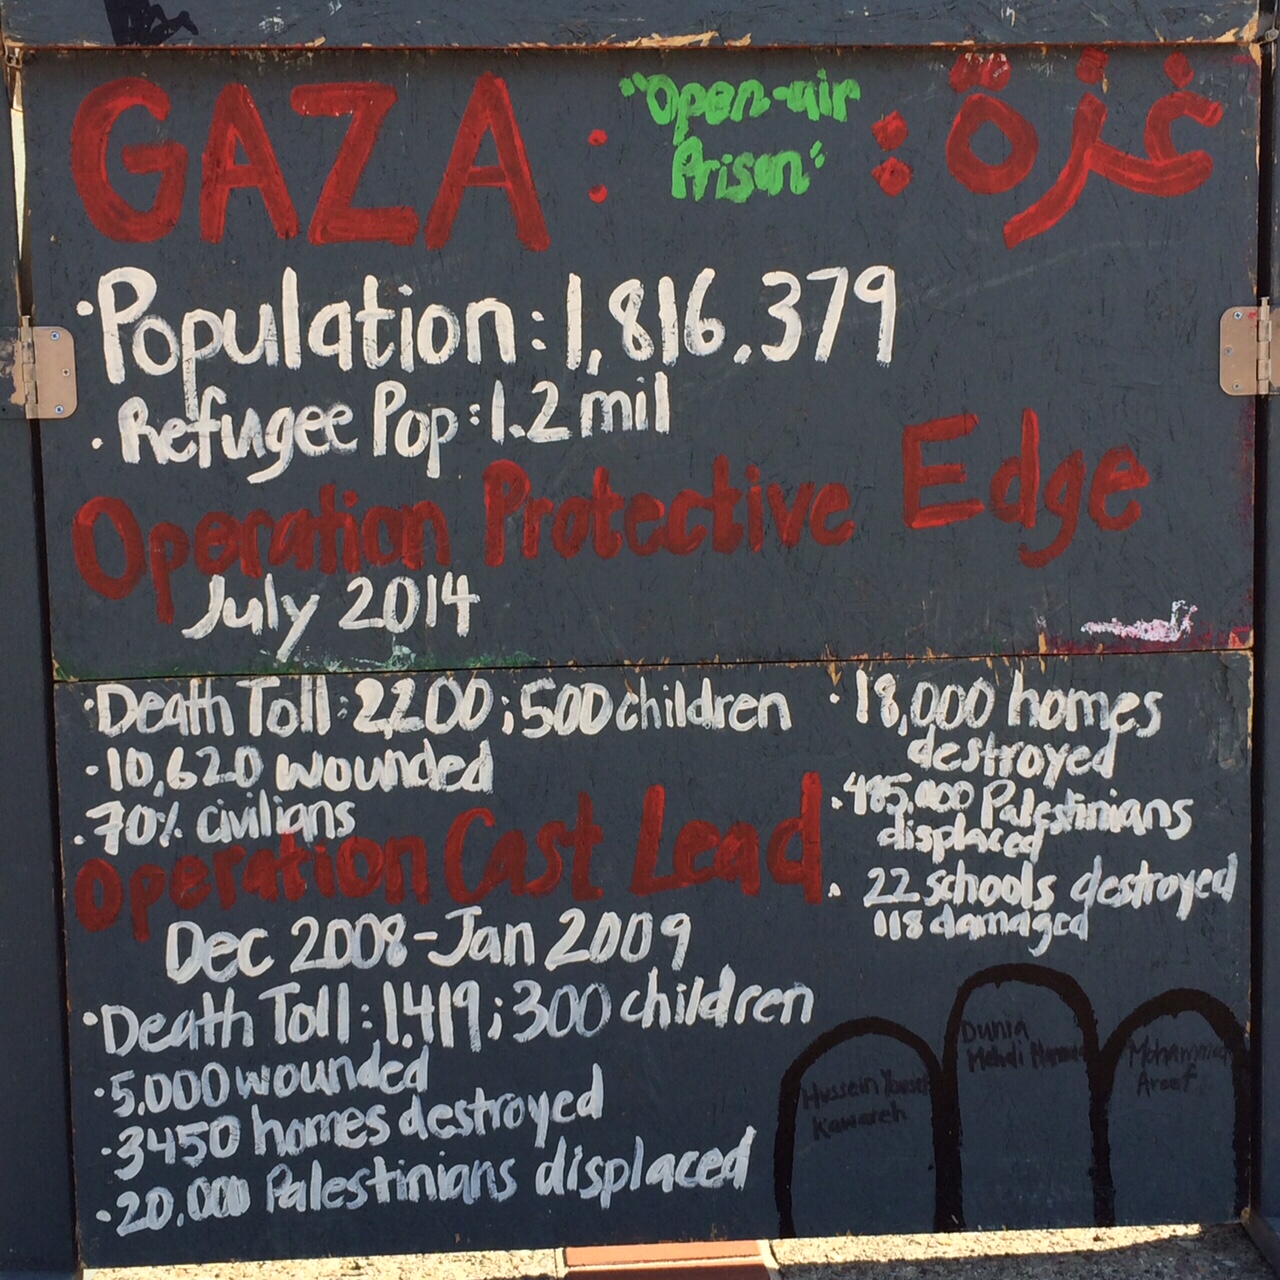 GAZA : "Open-air Prison" : غزة
• Population : 1,816,379
• Refugee Pop : 1.2 mil
Operation Protective Edge
July 2014
• Death Toll : 2,200 ; 500 children
• 10,620 wounded
• 70% civilians
• 18,000 homes
destroyed
• 485,000 Palestinians
displaced
• 22 schools destroyed
118 damaged
Operation Cast Lead
Dec 2008 - Jan 2009
• Death Toll : 1,419 ; 300 children
• 5,000 wounded
• 3450 homes destroyed
• 20,000 Palestinians displaced
Hussein
Kawareh
Dunia
Mehdi
Mohammed
Areef